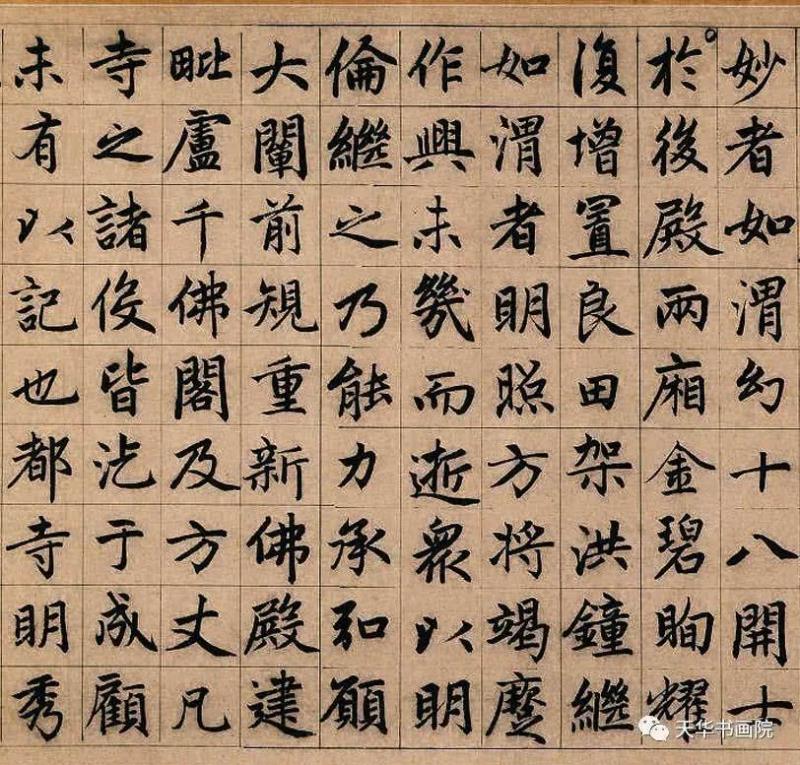 妙者如渭幻十八開士
於後殿兩廂金碧眴耀
復增置良田架洪鐘繼
如渭者明照方將竭蹷
作興未幾而逝眾以明
倫繼之乃能力承和願
大闡前規重新佛殿建
毗盧千佛閣及方丈凡
寺之諸伇皆汔于成顧
未有以記也都寺明秀
天华书画院